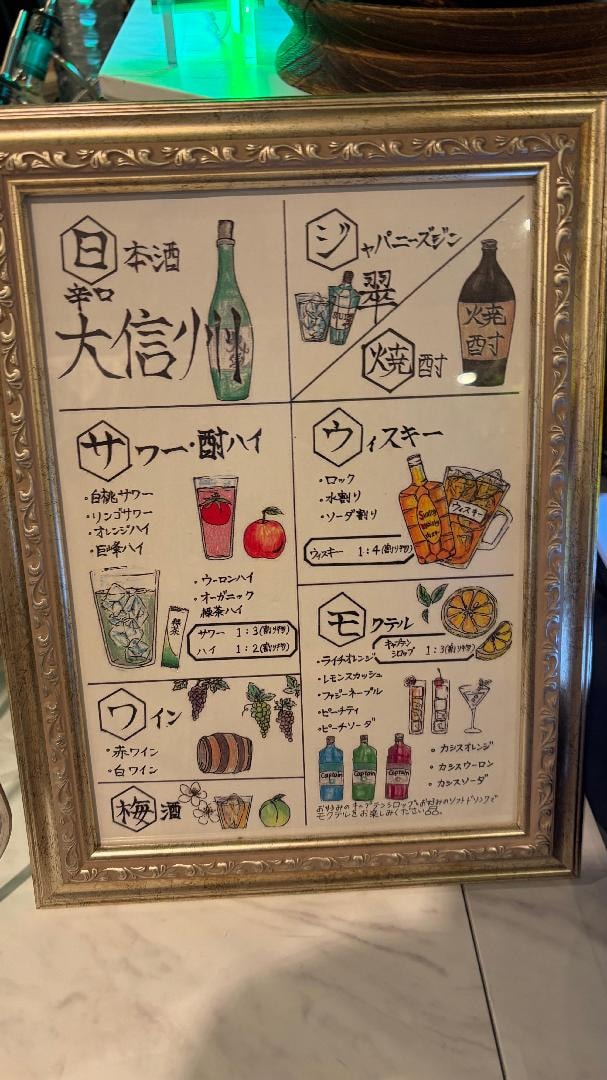 日本酒
辛口
大信州
ジャパニーズジン
翠
焼酎
焼酎
サワー・酎ハイ
・白桃サワー
・リンゴサワー
・オレンジハイ
・巨峰ハイ
・ウーロンハイ
・オーガニック
緑茶ハイ
緑茶
サワー 1:3(割り物)
ハイ 1:2(割り物)
ウィスキー
・ロック
・水割り
・ソーダ割り
ウィスキー
ウィスキー 1:4(割り物)
モクテル
キャプテン
シロップ 1:3(割り物)
・ライチオレンジ
・レモンスカッシュ
・ファジーネーブル
・ピーチティ
・ピーチソーダ
Captain
Captain
Captain
・カシスオレンジ
・カシスウーロン
・カシスソーダ
お好みのキャプテンシロップとお好みのソフトドリンクで
モクテルをお楽しみください
ワイン
・赤ワイン
・白ワイン
梅酒